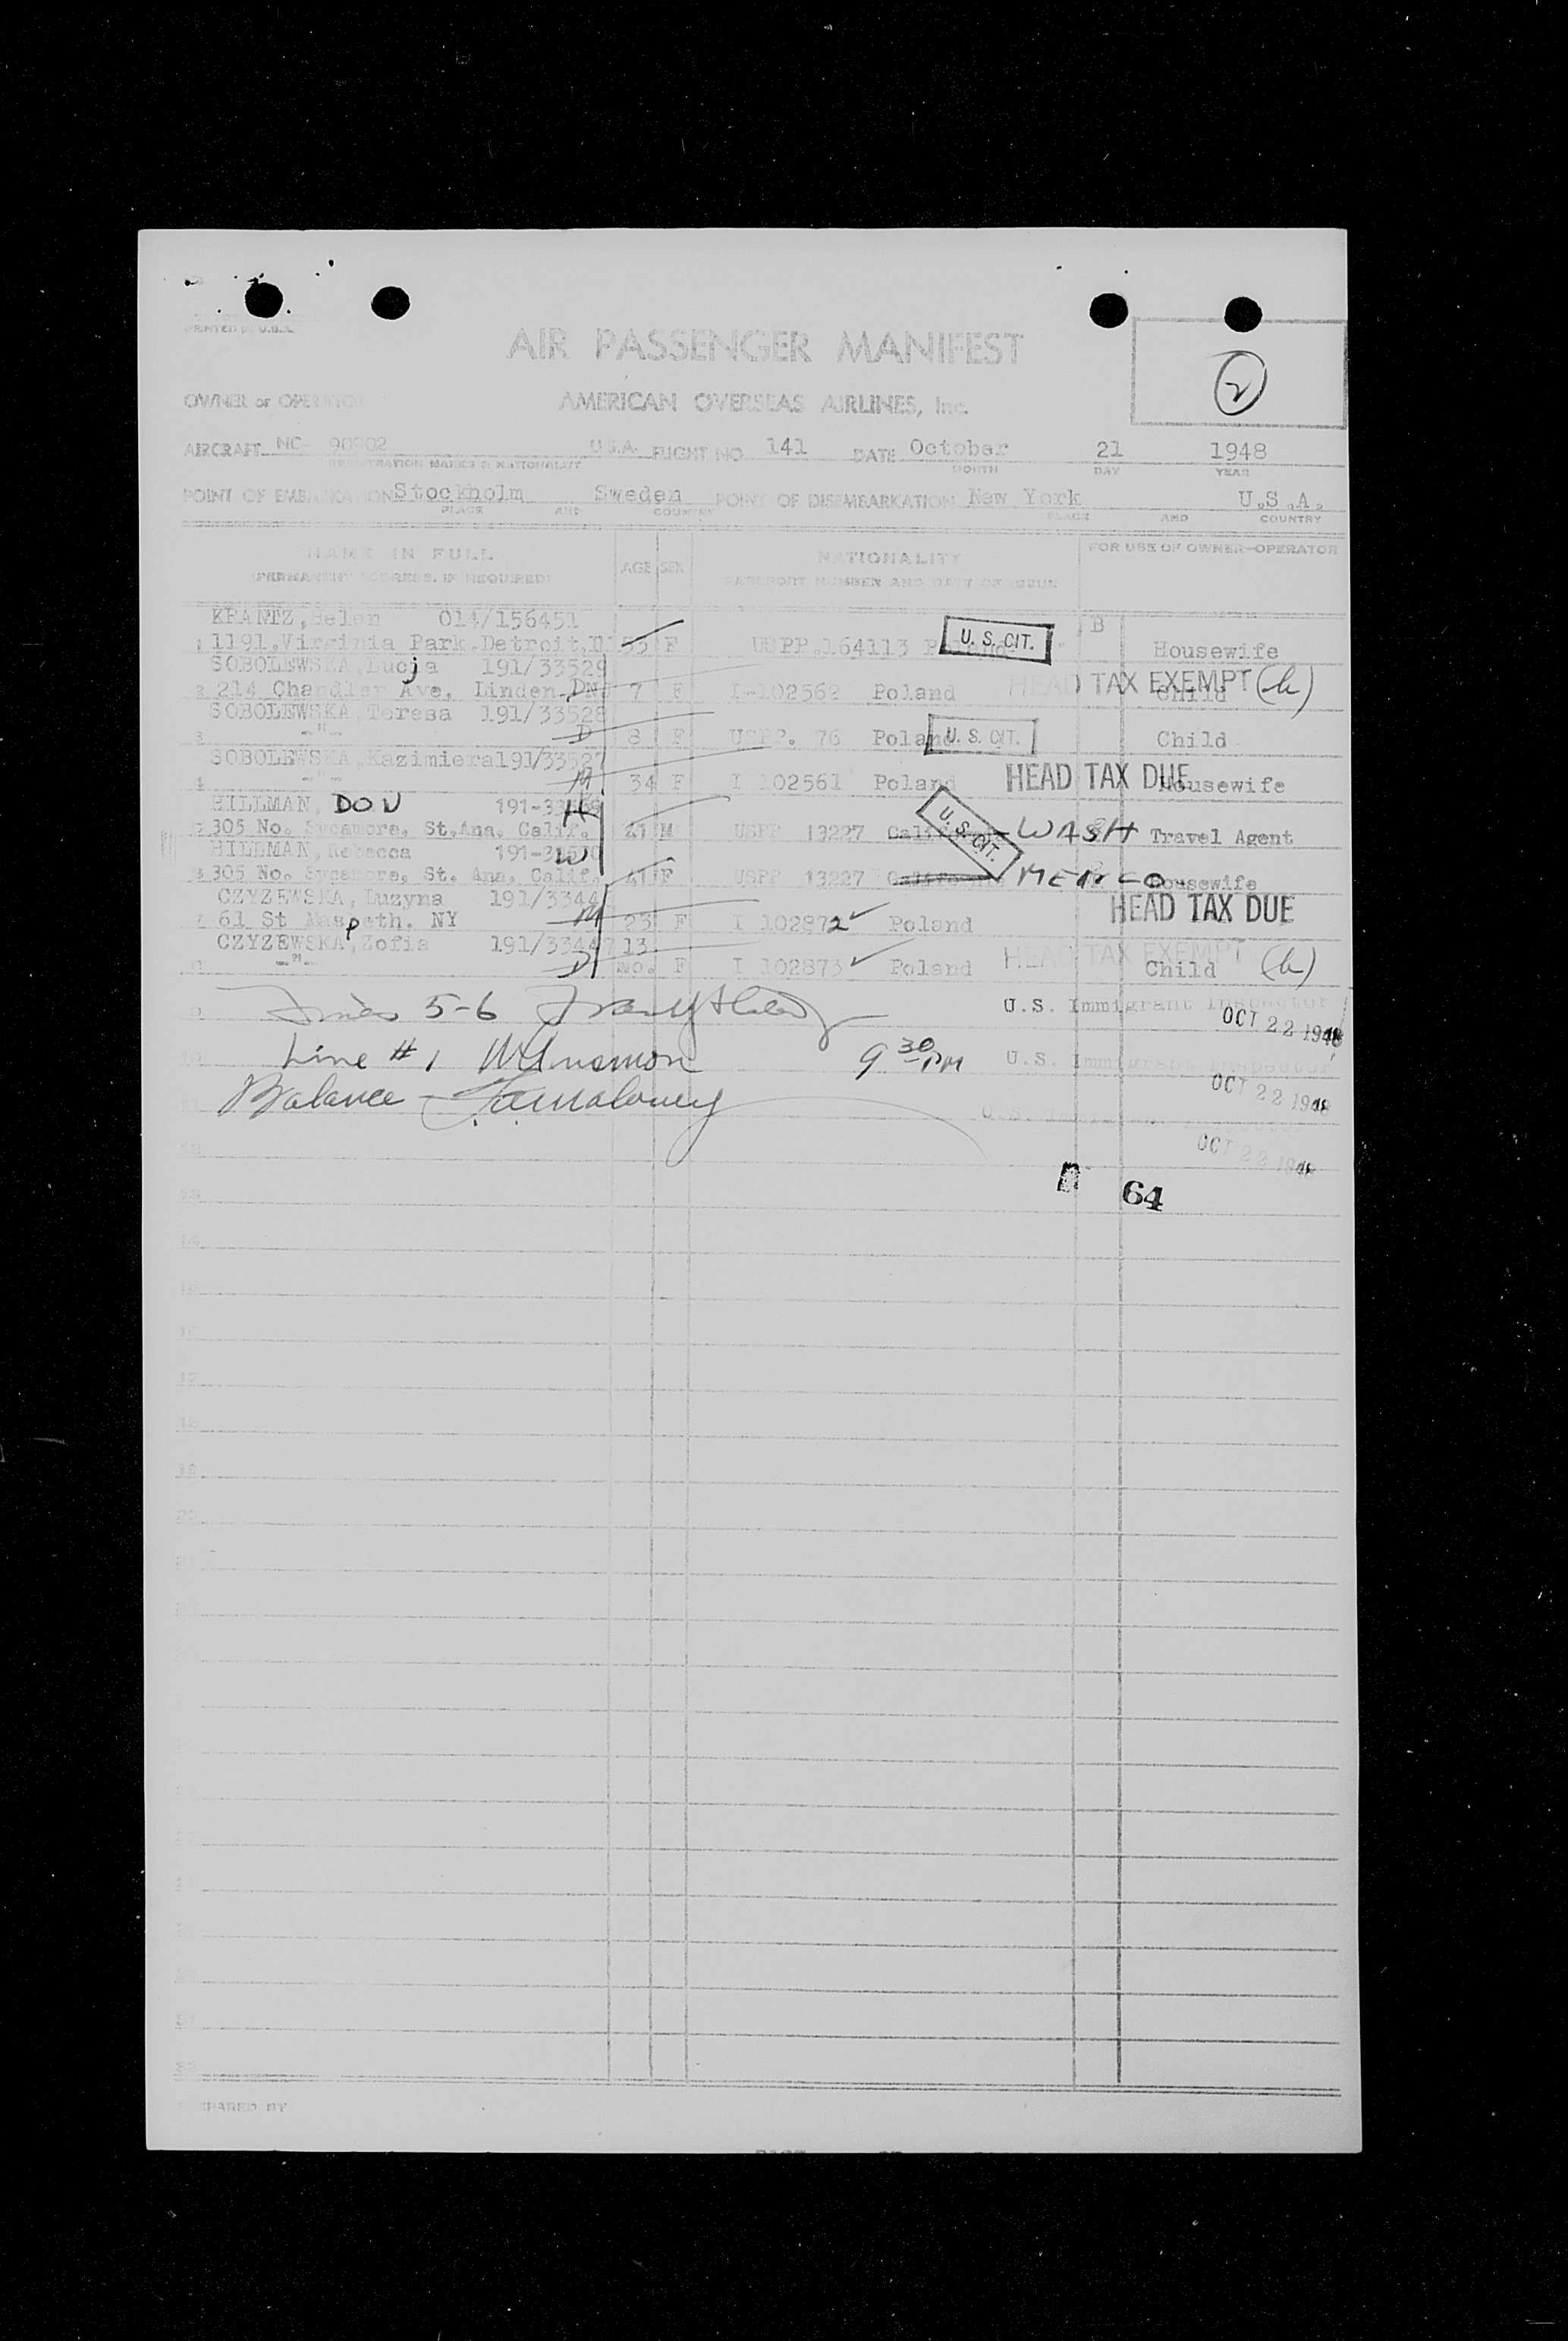 PRINTED IN U.S.A.
AIR PASSENGER MANIFEST
2
OWNER or OPERATOR AMERICAN OVERSEAS AIRLINES, Inc.
AIRCRAFT NC- 90902 U.S.A. FLIGHT NO. 141 DATE October 21 1948
REGISTRATION MARKS & NATIONALITY MONTH DAY YEAR
POINT OF EMBARKATION Stockholm Sweden POINT OF DISEMBARKATION New York U.S.A.
PLACE AND COUNTRY PLACE AND COUNTRY
NAME IN FULL AGE SEX NATIONALITY FOR USE OF OWNER-OPERATOR
(PERMANENT ADDRESS, IF REQUIRED) PASSPORT NUMBER AND DATE OF ISSUE
KRANTZ, Helen 014/156451 B
1 1191, Virginia Park, Detroit, 55 F USPP. 164113 U. S. CIT. Housewife
SOBOLEWSKA, Lucja 191/33529
2 214 Chandler Ave, Linden DN 7 F I-102562 Poland HEAD TAX EXEMPT (h) Child
SOBOLEWSKA, Teresa 191/33528
3 -"- D 8 F USPP. 76 Poland U. S. CIT. Child
SOBOLEWSKA, Kazimiera 191/33527
4 -"- M 34 F I 102561 Poland HEAD TAX DUE Housewife
HILLMAN, DON 191-33569 H
5 305 No. Sycamore, St. Ana, Calif. 41 M USPP 13227 California U. S. CIT. WASH Travel Agent
HILLMAN, Rebecca 191-33570 W
6 305 No. Sycamore, St. Ana, Calif. 41 F USPP 13227 California Housewife
CZYZEWSKA, Luzyna 191/3344 HEAD TAX DUE
7 61 St Maspeth, NY M 23 F I 102872 ✓ Poland
CZYZEWSKA, Zofia 191/33447 13
8 -"- D mo. F I 102873 ✓ Poland HEAD TAX EXEMPT Child (h)
9 Lines 5-6 U.S. Immigrant Inspector
OCT 22 1948
10 Line # 1 9 30 PM U.S. Immigrant Inspector
OCT 22 1948
11 Balance - U.S.
12 OCT 22 1948
13 64
14
15
16
17
18
19
20
PREPARED BY